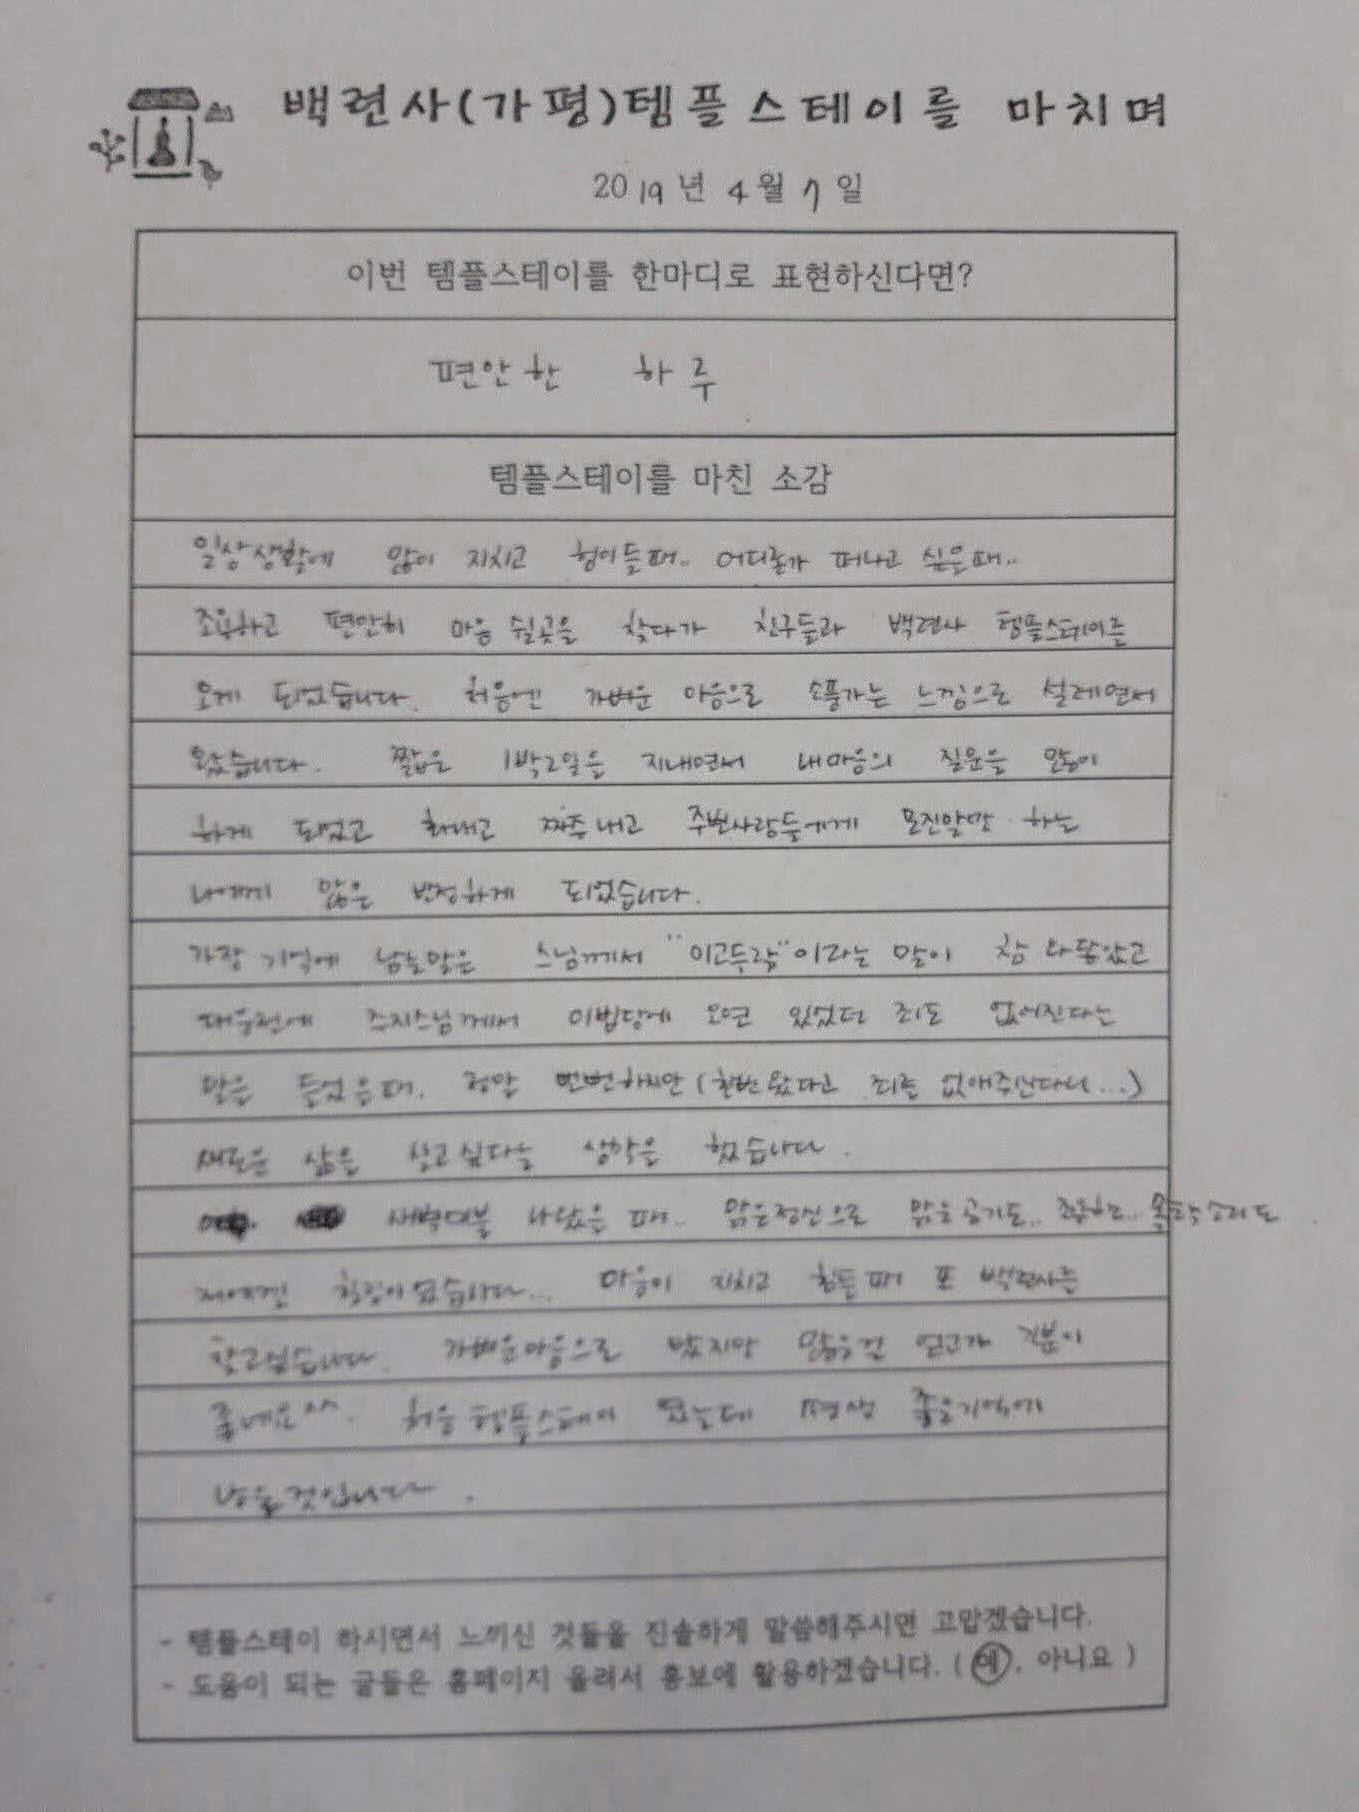 백련사(가평)템플스테이를 마치며
2019년 4월 7일
이번 템플스테이를 한마디로 표현하신다면?
편안한 하루
템플스테이를 마친 소감
일상생활에 많이 지치고 힘이들때.. 어디론가 떠나고 싶은때..
조용하고 편안히 마음 쉴곳을 찾다가 친구들과 백련사 템플스테이를
오게 되었습니다. 처음엔 가벼운 마음으로 소풍가는 느낌으로 설레면서
왔습니다. 짧은 1박2일을 지내면서 내마음의 질문을 많이
하게 되었고 화내고 짜증내고 주변사람들에게 모진말만 하는
나에게 많은 반성하게 되었습니다.
가장 기억에 남는말은 스님께서 "이고득락"이라는 말이 참 와닿았고
대웅전에 주지스님께서 이법당에 오면 있었던 죄도 없어진다는
말을 들었을때. 정말 뻔뻔하지만 (한번 왔다고 죄를 없애주신다니...)
새로운 삶을 살고싶다는 생각을 했습니다.
새벽예불 나갔을 때.. 맑은정신으로 맑은공기도.. 목탁소리도
저에겐 힐링이였습니다... 마음이 지치고 힘들때 또 백련사를
찾고싶습니다. 가벼운마음으로 왔지만 많은걸 얻고가 기분이
좋네요^^. 처음 템플스테이 였는데 평생 좋은기억에
남을것입니다.
- 템플스테이 하시면서 느끼신 것들을 진솔하게 말씀해주시면 고맙겠습니다.
- 도움이 되는 글들은 홈페이지 올려서 홍보에 활용하겠습니다. ( 예, 아니요 )